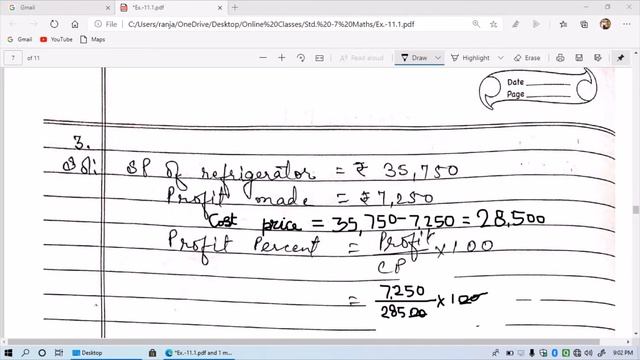 Gmail
*Ex.-11.1.pdf
C:/Users/ranja/OneDrive/Desktop/Online%20Classes/Std.%20-7%20Maths/Ex.-11.1.pdf
Gmail YouTube Maps
7 of 11
Read aloud Draw Highlight Erase
Date
Page
3.
Sol: SP of refrigerator = ₹ 35,750
Profit made = ₹ 7,250
Cost price = 35,750-7,250 = 28,500
Profit Percent = Profit/CP × 100
= 7,250/28500 × 100
Desktop
*Ex.-11.1.pdf and 1 m...
ENG 9:02 PM